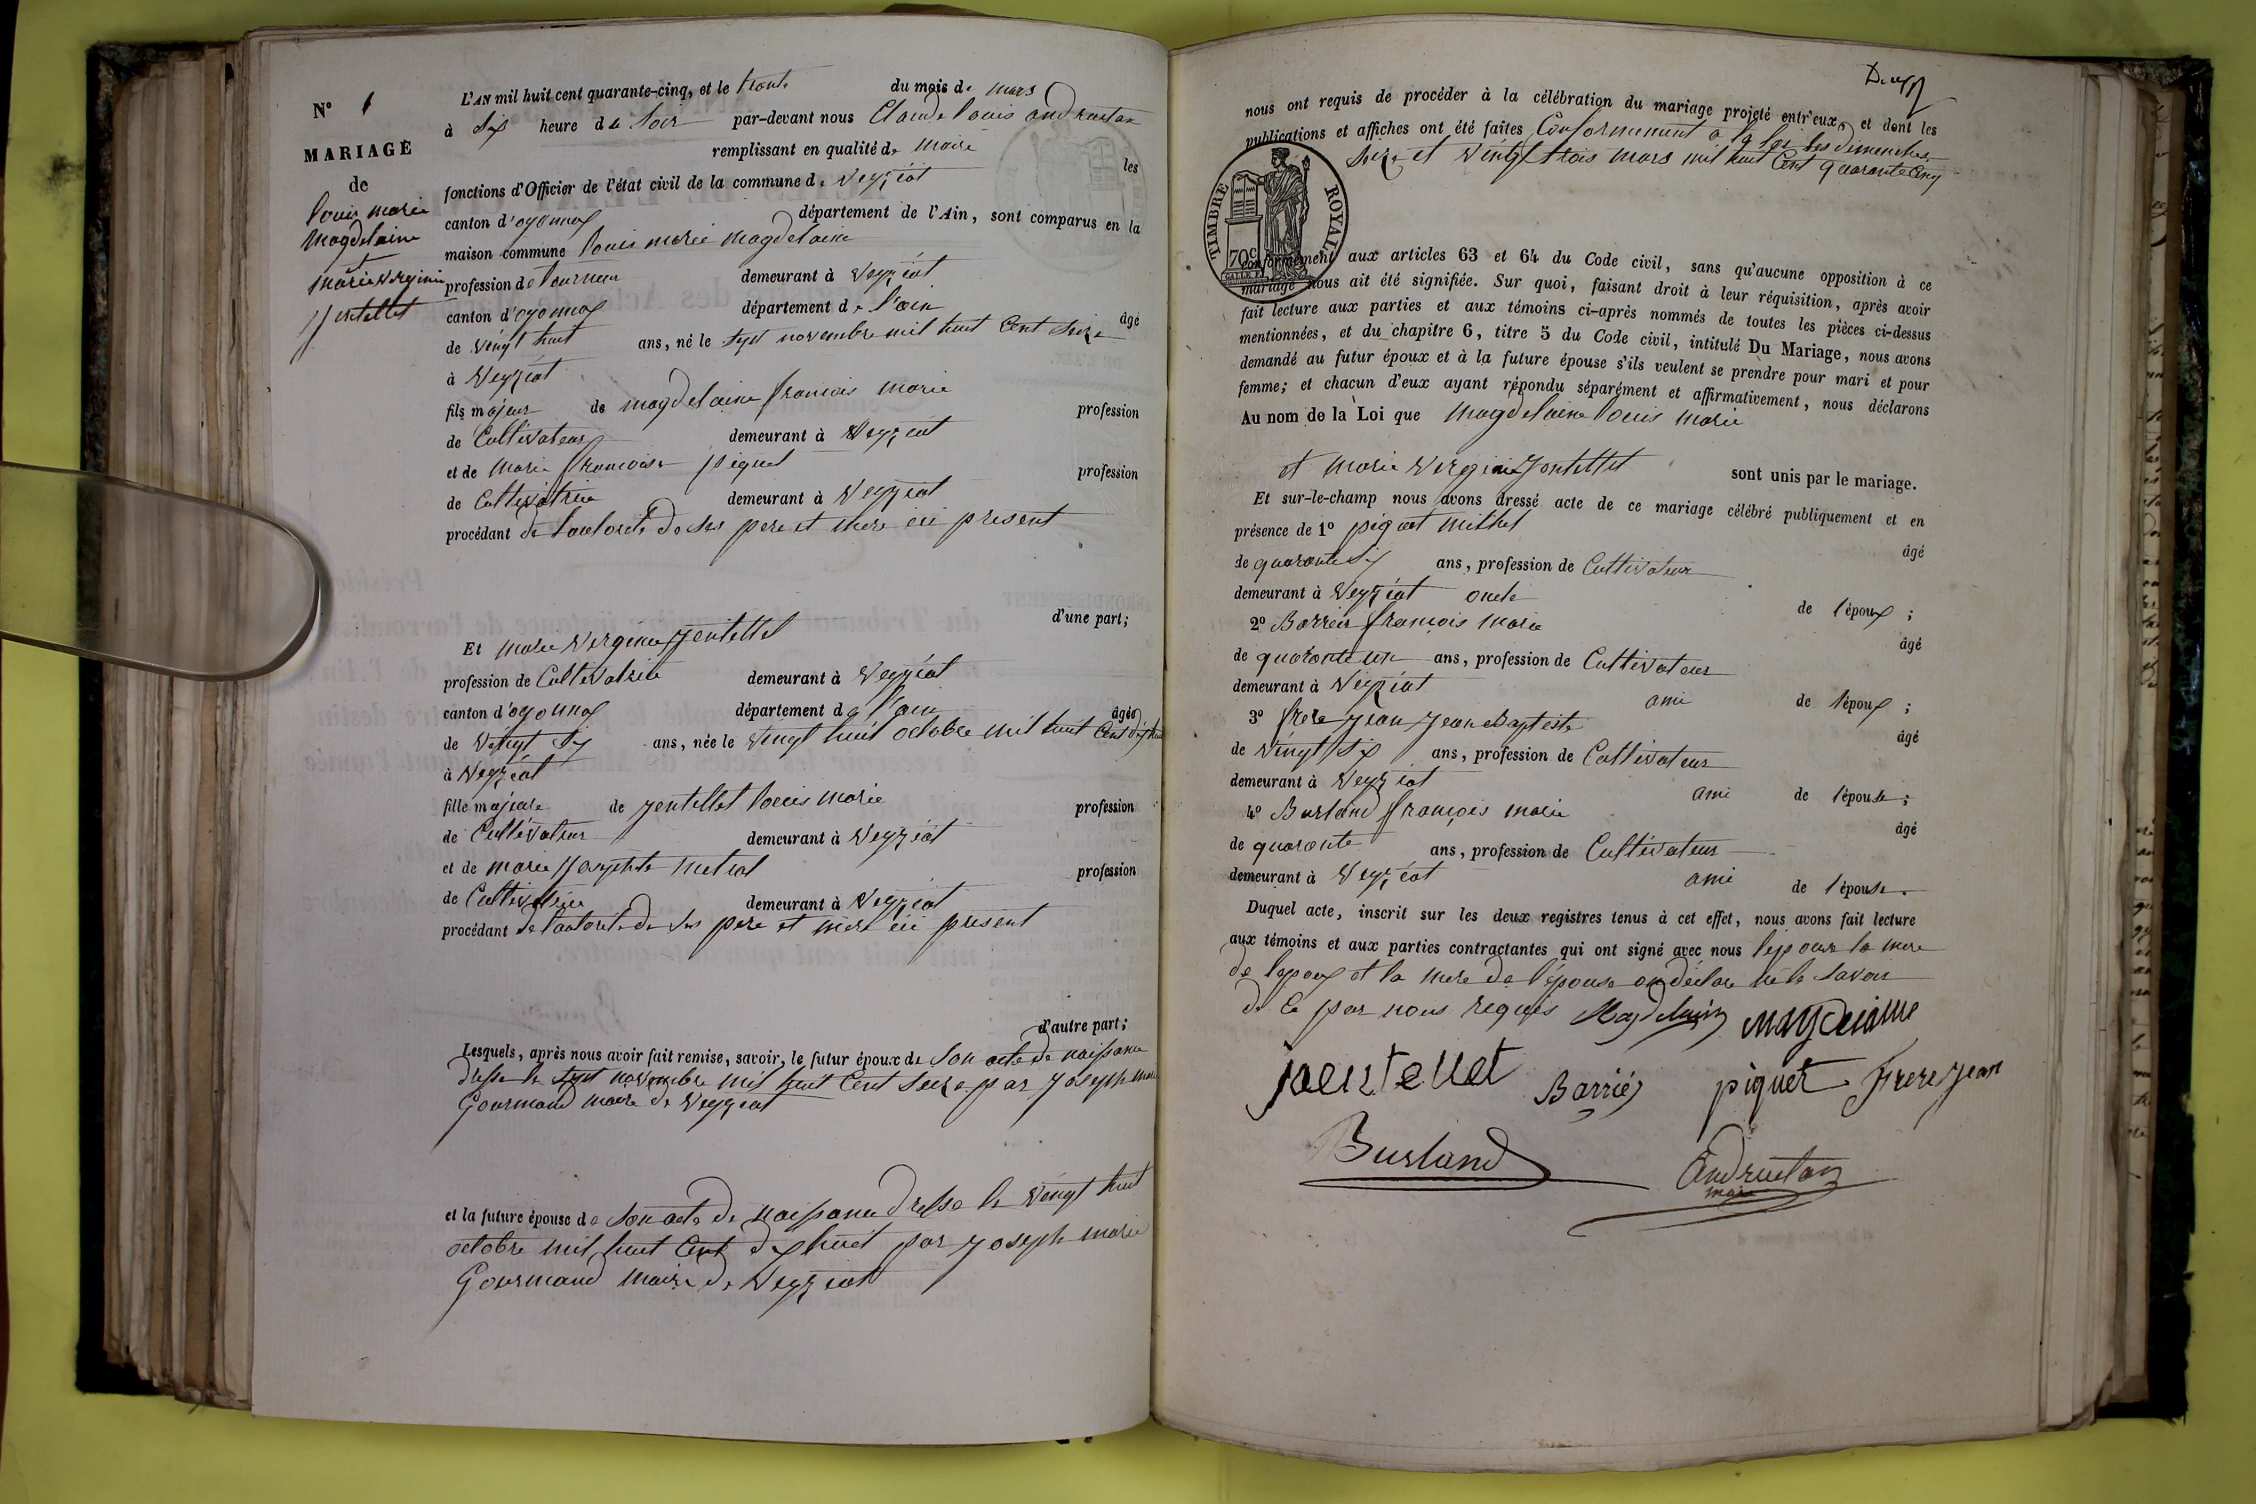 N° 1
MARIAGE
de
louis marie
Magdelaine
et
marie Virginie
Jentellet
L'AN mil huit cent quarante-cinq, et le trente du mois de mars
à six heure du soir par-devant nous Claude louis andruetan
remplissant en qualité de maire les
fonctions d'Officier de l'état civil de la commune de Veyziat
canton d'oyonnax département de l'Ain, sont comparus en la
maison commune louis marie magdelaine
profession de tourneur demeurant à Veyziat
canton d'oyonnax département de l'ain âgé
de vingt huit ans, né le sept novembre mil huit cent seize
à Veyziat
fils majeur de magdelaine françois marie profession
de Cultivateur demeurant à Veyziat
et de marie françoise piquet profession
de Cultivatrice demeurant à Veyziat
procédant de l'autorité de ses pere et mere ici present
d'une part;
Et marie virginie Jentellet
profession de Cultivatrice demeurant à Veyziat
canton d'oyonnax département de l'ain âgée
de vingt six ans, née le vingt huit octobre mil huit cent dix huit
à Veyziat
fille majeure de jentellet louis marie profession
de Cultivateur demeurant à Veyziat
et de marie josephte metral profession
de Cultivatrice demeurant à Veyziat
procédant de l'autorité de ses pere et mere ici present
d'autre part;
Lesquels, après nous avoir fait remise, savoir, le futur époux de son acte de naissance
dressé le sept novembre mil huit cent seize par joseph marie
Gourmand maire de Veyziat
et la future épouse de son acte de naissance dressé le vingt huit
octobre mil huit cent dix huit par joseph marie
Gourmand maire de Veyziat
Deux
nous ont requis de procéder à la célébration du mariage projeté entr'eux, et dont les
publications et affiches ont été faites Conformement a la loi les dimanches
seize et vingt trois mars mil huit cent quarante cinq
TIMBRE ROYAL
70c
conformément aux articles 63 et 64 du Code civil, sans qu'aucune opposition à ce
mariage nous ait été signifiée. Sur quoi, faisant droit à leur réquisition, après avoir
fait lecture aux parties et aux témoins ci-après nommés de toutes les pièces ci-dessus
mentionnées, et du chapitre 6, titre 5 du Code civil, intitulé Du Mariage, nous avons
demandé au futur époux et à la future épouse s'ils veulent se prendre pour mari et pour
femme; et chacun d'eux ayant répondu séparément et affirmativement, nous déclarons
Au nom de la Loi que Magdelaine louis marie
et marie Virginie Jentellet sont unis par le mariage.
Et sur-le-champ nous avons dressé acte de ce mariage célébré publiquement et en
présence de 1° piquet michel âgé
de quarante six ans, profession de Cultivateur
demeurant à Veyziat oncle de l'époux;
2° Barrier françois marie âgé
de quarante un ans, profession de Cultivateur
demeurant à Veyziat ami de l'époux;
3° frere jean jean Baptiste âgé
de vingt six ans, profession de Cultivateur
demeurant à Veyziat ami de l'épouse;
4° Burland françois marie âgé
de quarante ans, profession de Cultivateur
demeurant à Veyziat ami de l'épouse.
Duquel acte, inscrit sur les deux registres tenus à cet effet, nous avons fait lecture
aux témoins et aux parties contractantes qui ont signé avec nous l'epouse la mere
de l'epoux et la mere de l'épouse on déclare ne le savoir
de ce par nous requis Magdelaine magdelaine
jentellet Barrier piquet frere jean
Burland Andruetan
maire